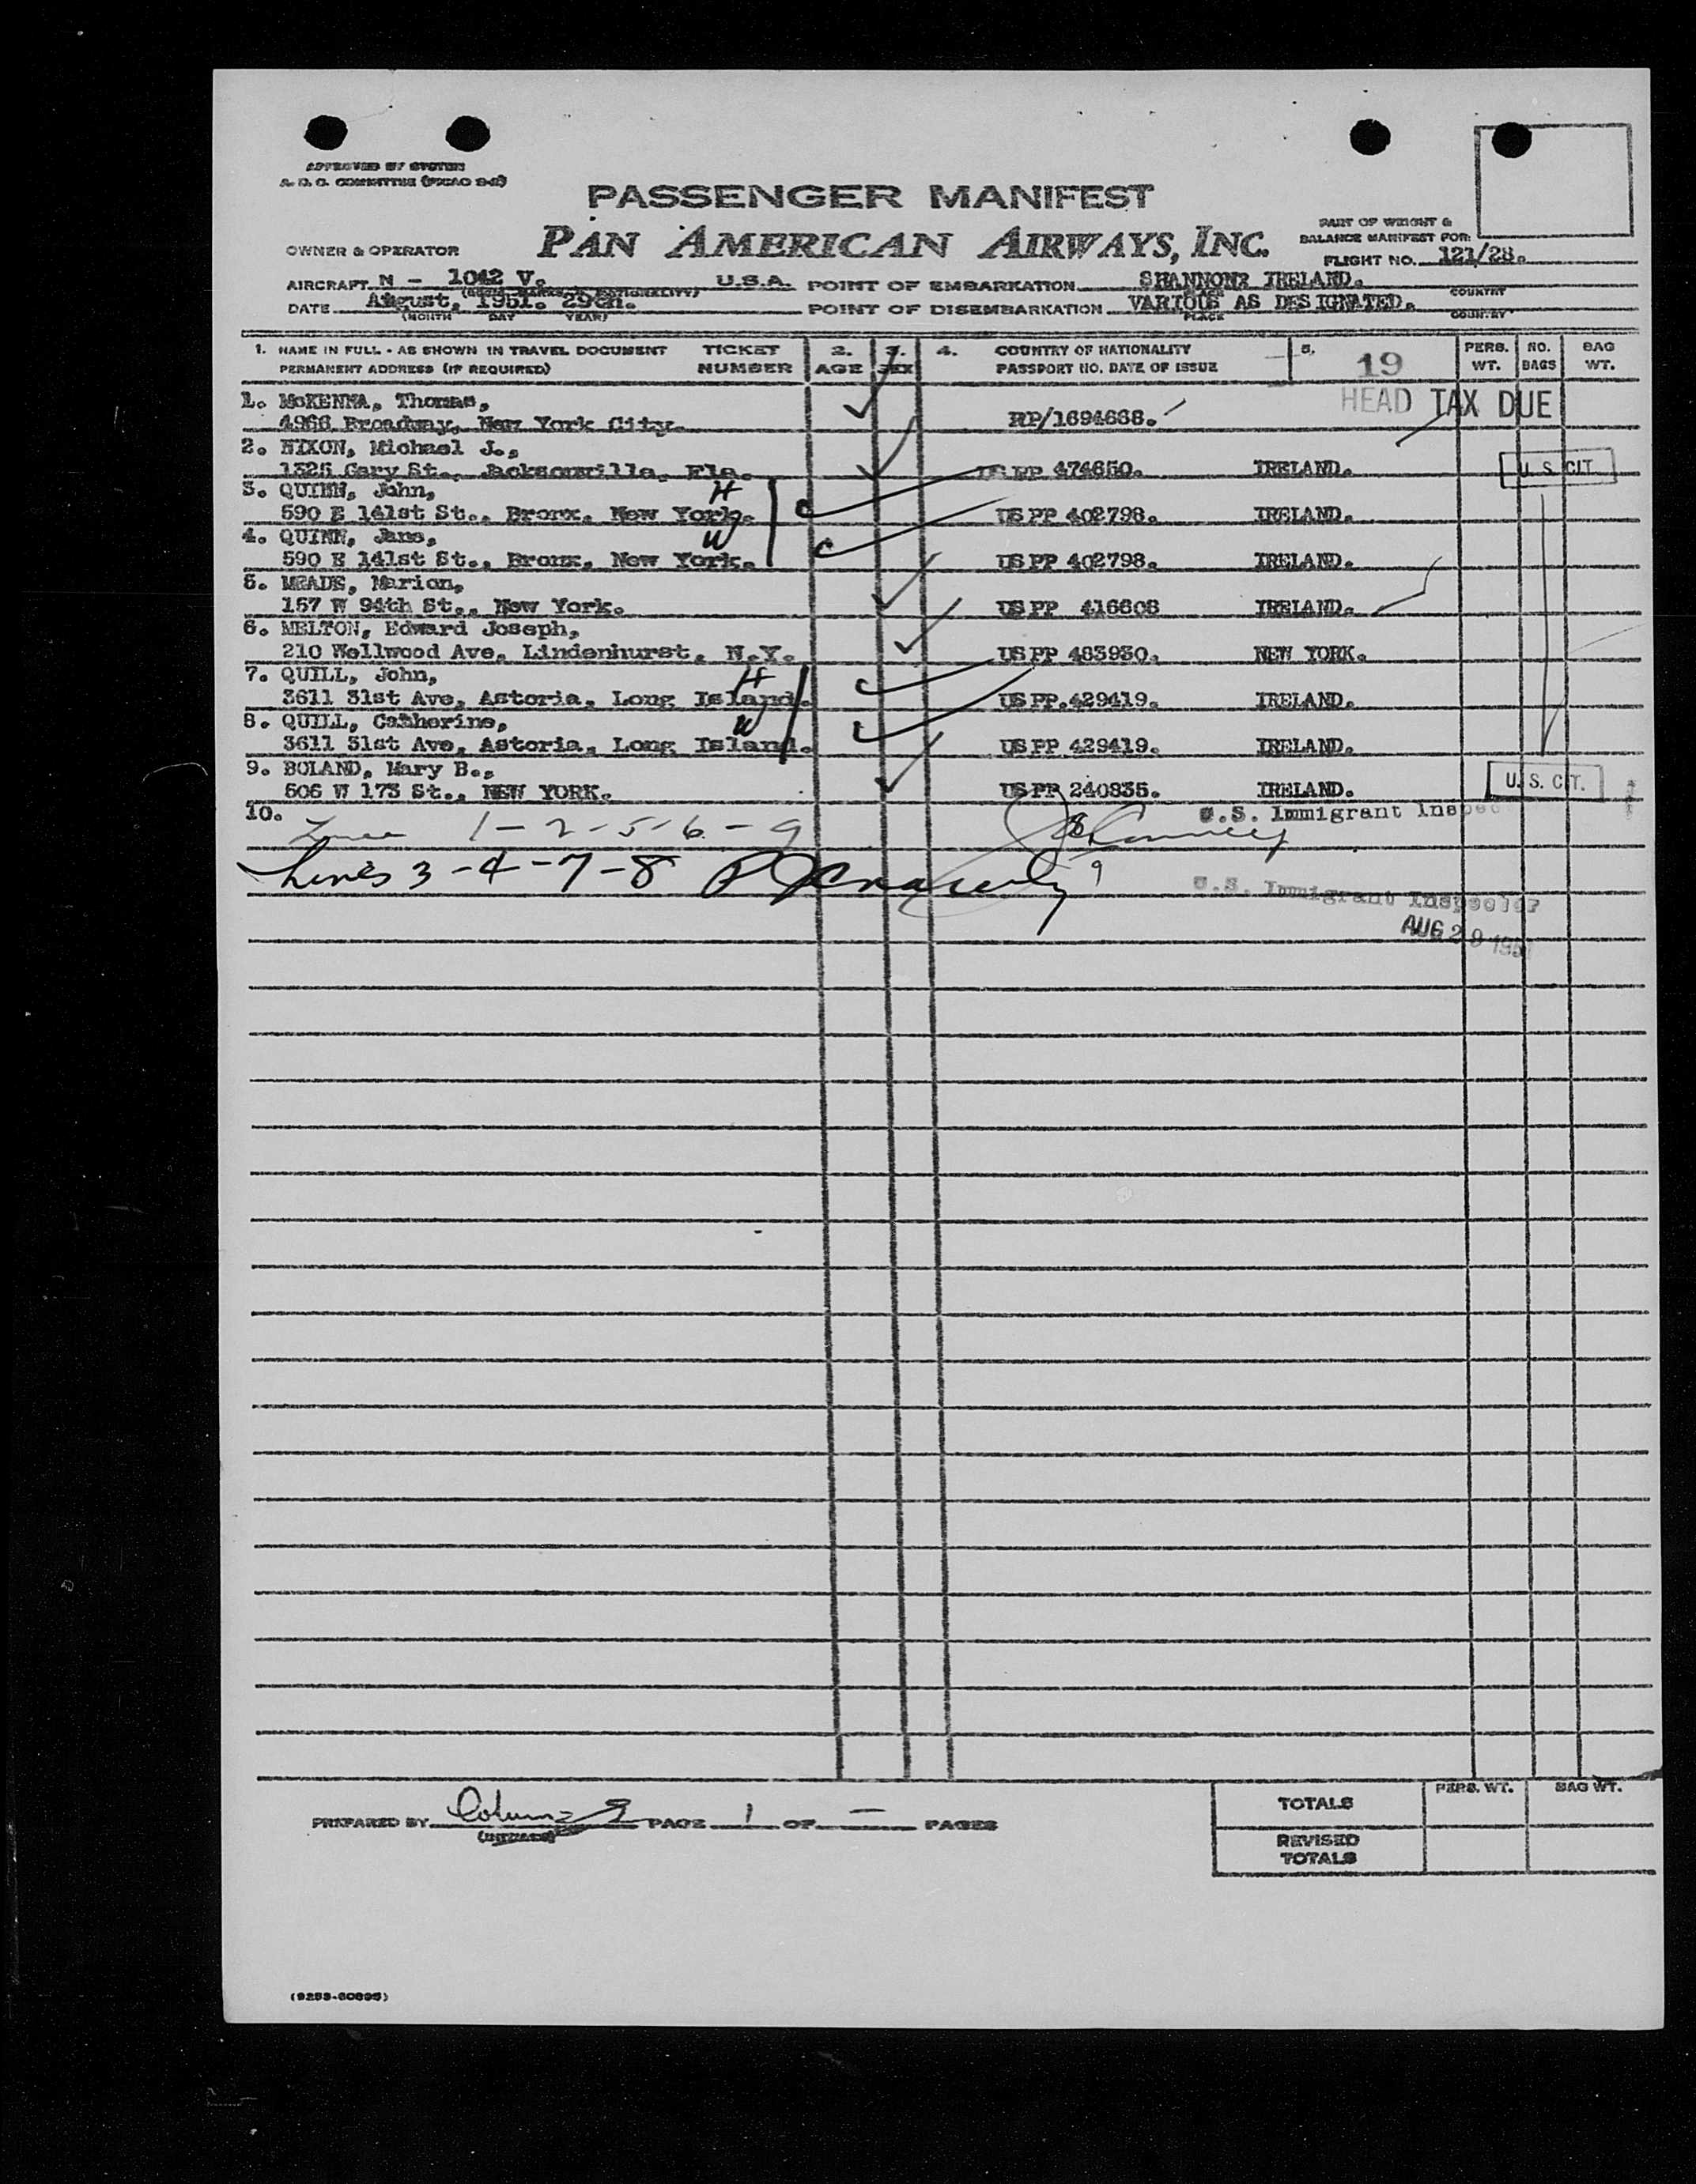 APPROVED BY SYSTEM
A. D. C. COMMITTEE (PICAO 2-2)
PASSENGER MANIFEST
PAN AMERICAN AIRWAYS, INC.
PART OF WEIGHT &
BALANCE MANIFEST FOR:
OWNER & OPERATOR
FLIGHT NO. 121/28.
AIRCRAFT N - 1042 V. U.S.A. POINT OF EMBARKATION SHANNON: IRELAND.
COUNTRY
DATE August, 1951. 29th. POINT OF DISEMBARKATION VARIOUS AS DESIGNATED.
(MONTH DAY YEAR) PLACE COUNTRY
1. NAME IN FULL - AS SHOWN IN TRAVEL DOCUMENT TICKET 2. 3. 4. COUNTRY OF NATIONALITY 5. 19 PERS. NO. BAG
PERMANENT ADDRESS (IF REQUIRED) NUMBER AGE SEX PASSPORT NO. DATE OF ISSUE WT. BAGS WT.
1. McKENNA, Thomas, HEAD TAX DUE
4966 Broadway, New York City. RP/1694668.
2. NIXON, Michael J.,
1325 Gary St., Jacksonville, Fla. US PP 474650. IRELAND. U. S. CIT.
3. QUINN, John, H
590 E 141st St., Bronx, New York. US PP 402798. IRELAND.
4. QUINN, Jane, W
590 E 141st St., Bronx, New York. US PP 402798. IRELAND.
5. MEADE, Marion,
157 W 94th St., New York. US PP 416608 IRELAND.
6. MELTON, Edward Joseph,
210 Wellwood Ave, Lindenhurst, N.Y. US PP 483930. NEW YORK.
7. QUILL, John, H
3611 31st Ave, Astoria, Long Island. US PP.429419. IRELAND.
8. QUILL, Catherine, W
3611 31st Ave, Astoria, Long Island. US PP 429419. IRELAND.
9. BOLAND, Mary B.,
606 W 173 St., NEW YORK. US PP 240835. IRELAND. U. S. CIT.
10. U.S. Immigrant Inspec
1-2-5-6-9
Lines 3-4-7-8
U.S. Immigrant Inspector
AUG 29 1951
PREPARED BY PAGE 1 OF — PAGES
(INITIALS)
PERS. WT. BAG WT.
TOTALS
REVISED
TOTALS
(9253-60895)